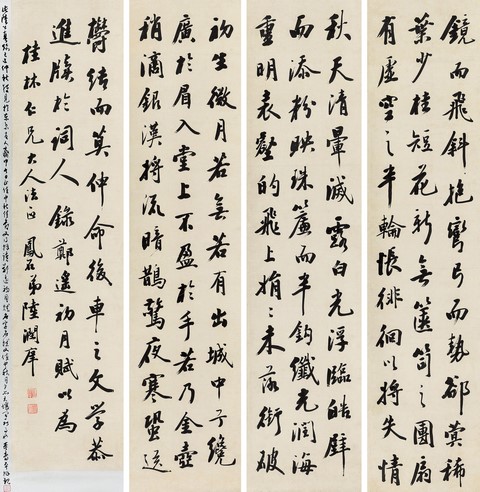 鏡而飛斜抱彎弓而勢卻蓂稀
葉少桂短花新無篋笥之團扇
有虛空之半輪悵徘徊以將失情
秋天清暈滅露白光浮臨皓壁
而添粉映珠簾而半鈎纖光潤海
重明表壑的飛上娟〻未落銜破
初生微月若無若有出城中予纔
廣於眉入堂上不盈於手若乃金壺
稍滴銀漢將流暗鵲驚夜寒蛩送
鬱結而莫伸命後車之文學恭
進牋於詞人 錄鄭遙初月賦以爲
桂林仁兄大人法正 鳳石弟陸潤庠